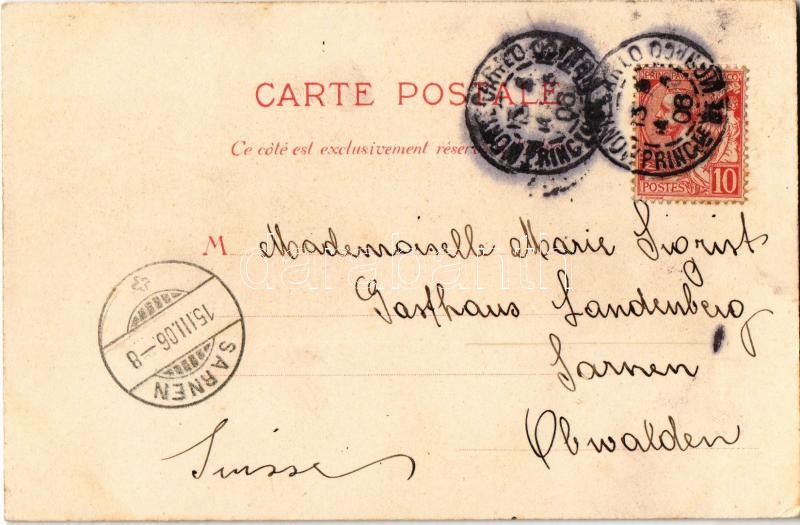 CARTE POSTALE
Ce côté est exclusivement réser
MONTE-CARLO
PRINCIP
13
4
06
MONTE-CARLO
PRINCIP
13
4
06
POSTES 10
M Mademoiselle Marie Sigrist
Gasthaus Landenberg
Sarnen
Obwalden
Suisse
15.III.06-8
SARNEN
darabanth